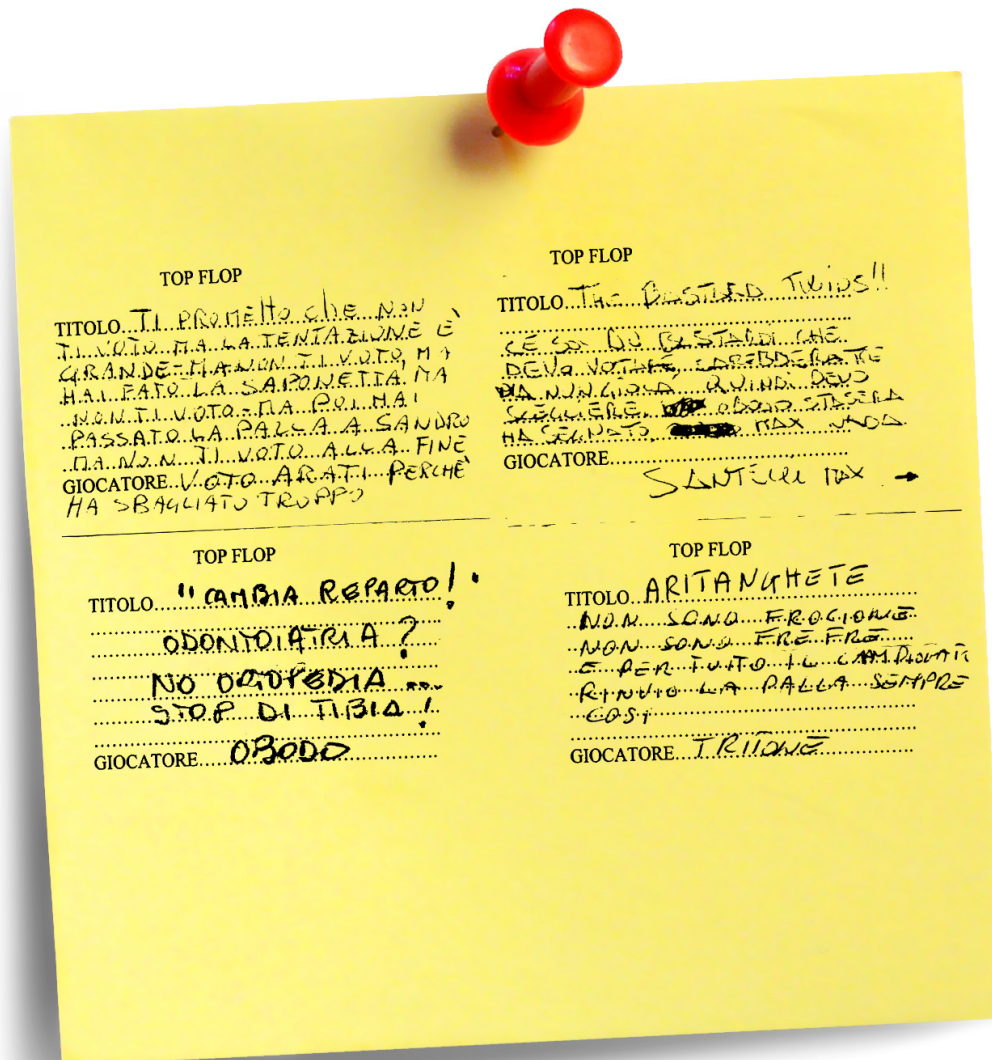 TOP FLOP
TITOLO...TI PROMETTO CHE NON
TI VOTO MA LA TENTAZIONE È
GRANDE-MA NON TI VOTO, MA
HAI FATO LA SAPONETTA, MA
NON TI VOTO-MA POI HAI
PASSATO LA PALLA A SANDRO
MA NON TI VOTO ALLA FINE
GIOCATORE VOTO ARATI PERCHÈ
HA SBAGLIATO TROPPO
TOP FLOP
TITOLO...THE BASTARD TWINS!!
CE SO' DU BASTARDI CHE
DEVO VOTARE, SAREBBERA TRE
MA NUN GIOCA QUINDI DEVO
SCEGLIERE, OBODO STASERA
HA SEGNATO, MAX
GIOCATORE
SANTILLI MAX →
TOP FLOP
TITOLO..."CAMBIA REPARTO!"
ODONTOIATRIA?
NO ORTOPEDIA...
STOP DI TIBIA!
GIOCATORE...OBODO
TOP FLOP
TITOLO...ARITANGHETE
NON SONO FROCIONE
NON SONO FRE FRE
E PER TUTTO IL
RINVIO LA PALLA SEMPRE
COSI
GIOCATORE...TRITONE